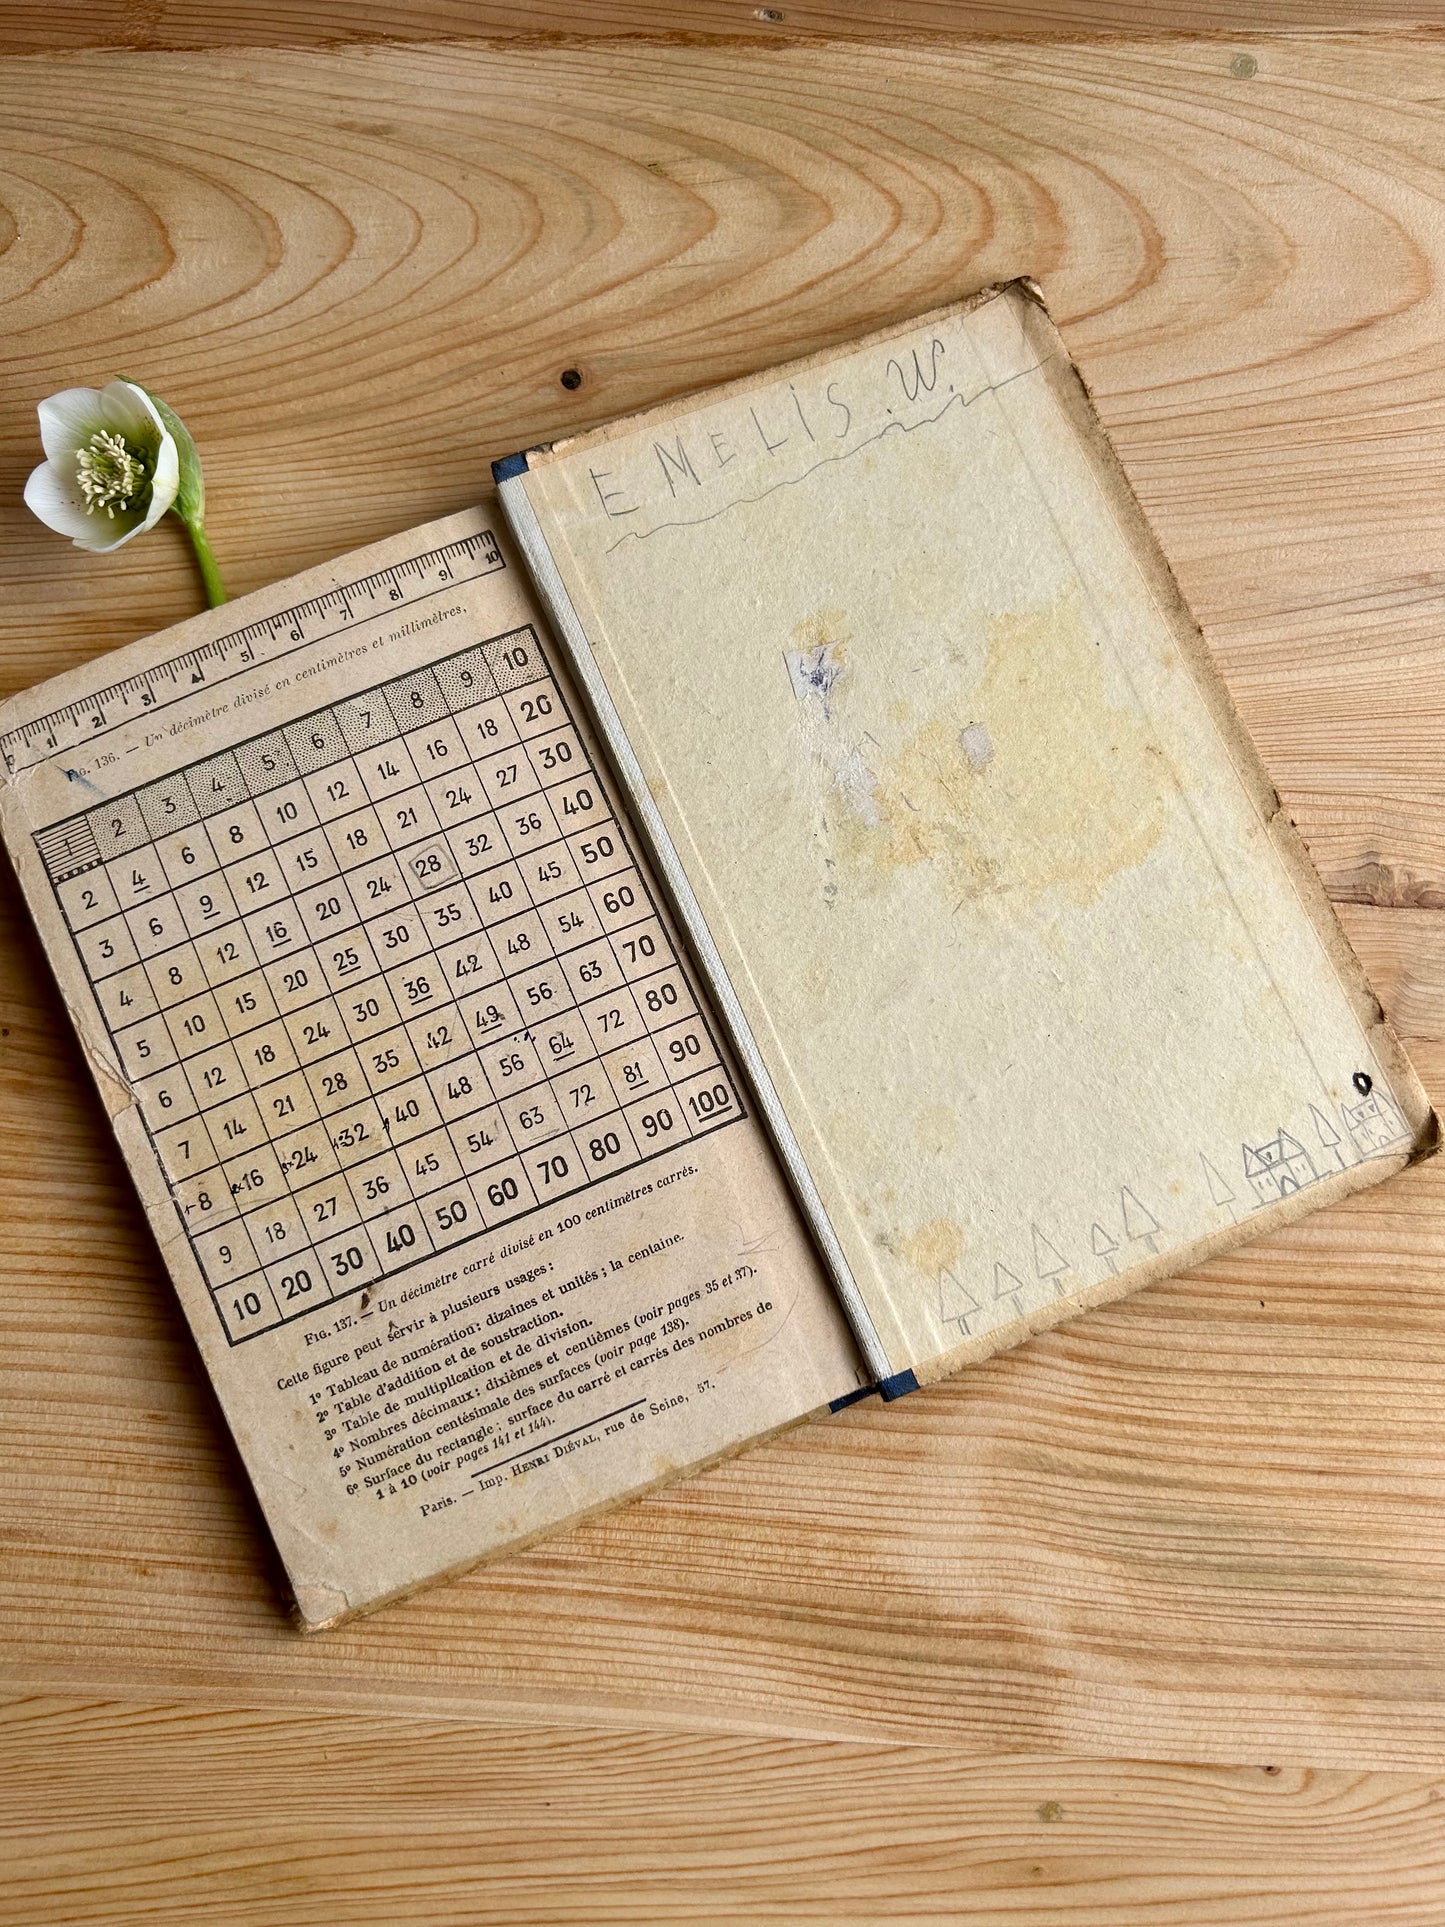 0 1 2 3 4 5 6 7 8 9 10
FIG. 136. — Un décimètre divisé en centimètres et millimètres.
1 2 3 4 5 6 7 8 9 10
2 4 6 8 10 12 14 16 18 20
3 6 9 12 15 18 21 24 27 30
4 8 12 16 20 24 28 32 36 40
5 10 15 20 25 30 35 40 45 50
6 12 18 24 30 36 42 48 54 60
7 14 21 28 35 42 49 56 63 70
8 16 24 32 40 48 56 64 72 80
9 18 27 36 45 54 63 72 81 90
10 20 30 40 50 60 70 80 90 100
FIG. 137. — Un décimètre carré divisé en 100 centimètres carrés.
Cette figure peut servir à plusieurs usages :
1º Tableau de numération : dizaines et unités ; la centaine.
2º Table d'addition et de soustraction.
3º Table de multiplication et de division.
4º Nombres décimaux ; dixièmes et centièmes (voir pages 35 et 37).
5º Numération centésimale des surfaces (voir page 138).
6º Surface du rectangle ; surface du carré et carrés des nombres de
1 à 10 (voir pages 141 et 144).
Paris. — Imp. HENRI DIÉVAL, rue de Seine, 57.
EMELIS.W.